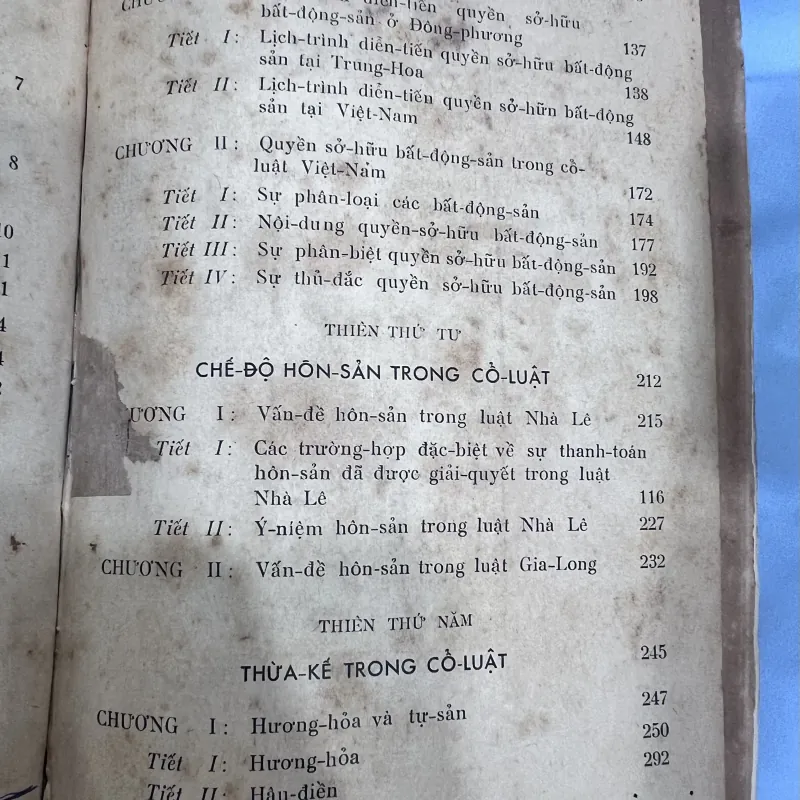 diễn-tiến quyền sở-hữu
bất-động-sản ở Đông-phương 137
Tiết I: Lịch-trình diễn-tiến quyền sở-hữu bất-động
sản tại Trung-Hoa 138
Tiết II: Lịch-trình diễn-tiến quyền sở-hữn bất-động
sản tại Việt-Nam 148
CHƯƠNG II: Quyền sở-hữu bất-động-sản trong cồ-
luật Việt-Nam 172
Tiết I: Sự phân-loại các bất-động-sản 174
Tiết II: Nội-dung quyền-sở-hữu bất-động-sản 177
Tiết III: Sự phân-biệt quyền sở-hữu bất-động-sản 192
Tiết IV: Sự thủ-đắc quyền sở-hữu bất-động-sản 198
THIÊN THỨ TƯ
CHẾ-ĐỘ HÔN-SẢN TRONG CỒ-LUẬT 212
ƯƠNG I: Vấn-đề hôn-sản trong luật Nhà Lê 215
Tiết I: Các trường-hợp đặc-biệt về sự thanh-toán
hôn-sản đã được giải-quyết trong luật
Nhà Lê 116
Tiết II: Ý-niệm hôn-sản trong luật Nhà Lê 227
CHƯƠNG II: Vấn-đề hôn-sản trong luật Gia-Long 232
THIÊN THỨ NĂM
THỪA-KẾ TRONG CỒ-LUẬT 245
CHƯƠNG I: Hương-hỏa và tự-sản 247
Tiết I: Hương-hỏa 250
Tiết II: Hậu-điền 292
7
8
10
1
1
4
4
2